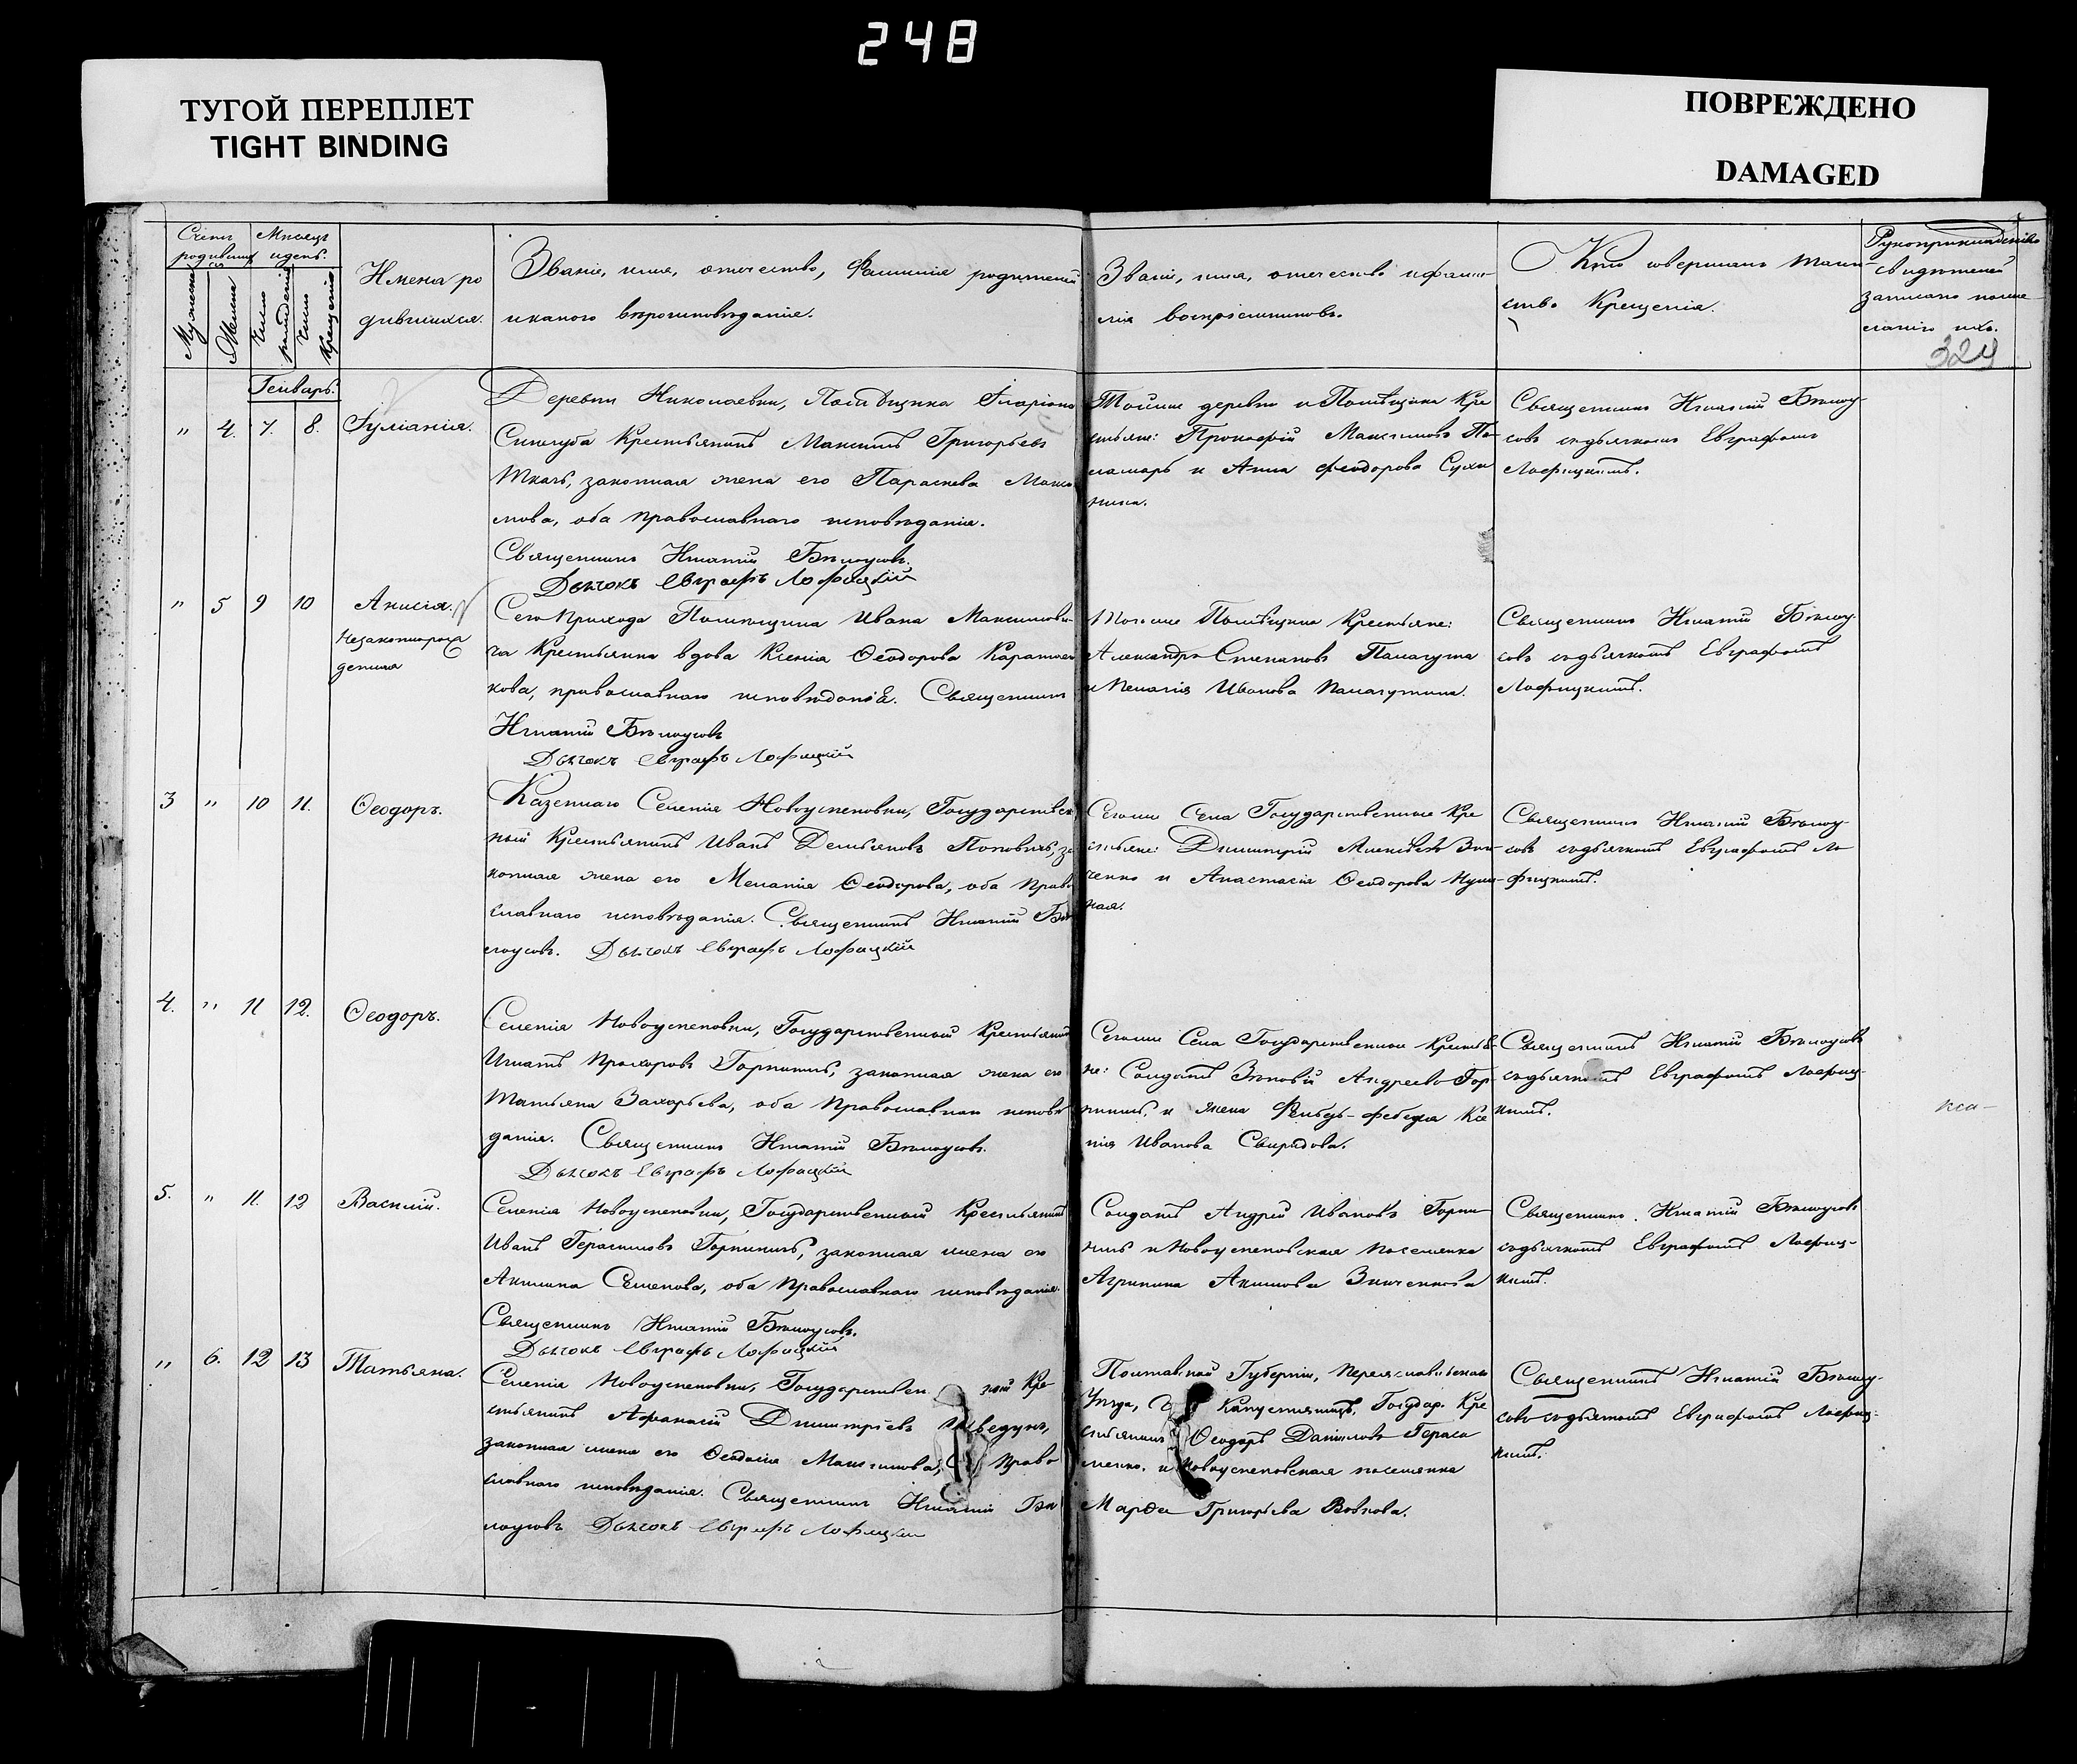 248
ТУГОЙ ПЕРЕПЛЕТ
TIGHT BINDING
ПОВРЕЖДЕНО
DAMAGED
Счетъ родившихся
Мѣсяцъ и день.
Мужеска
Женска
Число рожденія
Число Крещенія
Имена ро
дившихся.
Званіе, имя, отчество, Фамилія родителей
и какого вѣроисповѣданія.
Званіе, имя, отчество и фами-
лія воспріемниковъ.
Кто совершалъ таин-
ство Крещенія.
Рукоприкладство
свидѣтелей
записано по же-
ланію ихъ.
324
Генварь.
" 4. 7. 8. Іуліанія.
Деревни Николаевки, Помѣщика Иларіона
Синегуба Крестьянинъ Максимъ Григорьевъ
Ткачъ, законная жена его Параскева Макси
мова, оба православнаго исповѣданія.
Священникъ Игнатій Бѣлоусовъ.
Дьячокъ Евграфъ Лофицкій
Тойже деревни и Помѣщика Кре
стьяне: Прокофій Максимовъ По-
ламарь и Анна Феодорова Сухи
нина.
Священникъ Игнатій Бѣлоу-
совъ съ дьячкомъ Евграфомъ
Лофицкимъ.
" 5 9 10 Анисія.
Незаконнорож
денная
Сего Прихода Помѣщика Ивана Максимови-
ча Крестьянка вдова Ксенія Ѳеодорова
кова, православнаго исповѣданія. Священникъ
Игнатій Бѣлоусовъ
Дьячокъ Евграфъ Лофицкій
Тогоже Помѣщика Крестьяне:
Александръ Степановъ Палагута
и Пелагія Иванова Палагутина.
Священникъ Игнатій Бѣлоу-
совъ съ дьячкомъ Евграфомъ
Лофицкимъ.
3 " 10 11. Ѳеодоръ.
Казеннаго Селенія Новоуспеновки, Государствен
ный Крестьянинъ Иванъ Демьяновъ Поповичъ, за
конная жена его Меланія Ѳеодорова, оба Право
славнаго исповѣданія. Священникъ Игнатій Бѣ
лоусовъ. Дьячокъ Евграфъ Лофицкій
Сегоже Села Государственные Кре
стьяне: Димитрій Алексѣевъ Зин-
ченко и Анастасія Ѳеодорова
ная.
Священникъ Игнатій Бѣлоу-
совъ съ дьячкомъ Евграфомъ Ло
фицкимъ.
4. " 11 12. Ѳеодоръ.
Селенія Новоуспеновки, Государственный Крестьянинъ
Игнатъ Прохоровъ Горпиничъ, законная жена его
Татьяна Захарьева, оба Православнаго исповѣ
данія. Священникъ Игнатій Бѣлоусовъ.
Дьячокъ Евграфъ Лофицкій
Сегоже Села Государственные Крестья-
не: Солдатъ Зѣновій Андреевъ Гор-
пиничъ, и жена Ксе
нія Иванова Свиридова.
Священникъ Игнатій Бѣлоусовъ
съ дьячкомъ Евграфомъ Лофиц-
кимъ.
5. " 11. 12 Василій.
Селенія Новоуспеновки, Государственный Крестьянинъ
Иванъ Герасимовъ Горпиничъ, законная жена его
Акилина Семенова, оба Православнаго исповѣданія.
Священникъ Игнатій Бѣлоусовъ.
Дьячокъ Евграфъ Лофицкій
Солдатъ Андрей Ивановъ Горпи-
ничъ и Новоуспеновская поселянка
Агрипина Акимова Зинченкова
Священникъ Игнатій Бѣлоусовъ
съ дьячкомъ Евграфомъ Лофиц-
кимъ.
" 6. 12 13 Татьяна.
Селенія Новоуспеновки, Государствен ный Кре
стьянинъ Афанасій Димитріевъ Шведунъ,
законная жена его Ѳеодосія Максимова, Право
славнаго исповѣданія. Священникъ Игнатій Бѣ
лоусовъ Дьячокъ Евграфъ Лофицкій
Полтавской Губерніи, Переяславльскаго
Уѣзда, Капустянецъ, Государ. Кре
стьянинъ Ѳеодоръ Даниловъ Гераси
менко. и Новоуспеновская поселянка
Марѳа Григорьева Вовкова.
Священникъ Игнатій Бѣлоу-
совъ съ дьячкомъ Евграфомъ Лофиц-
кимъ.